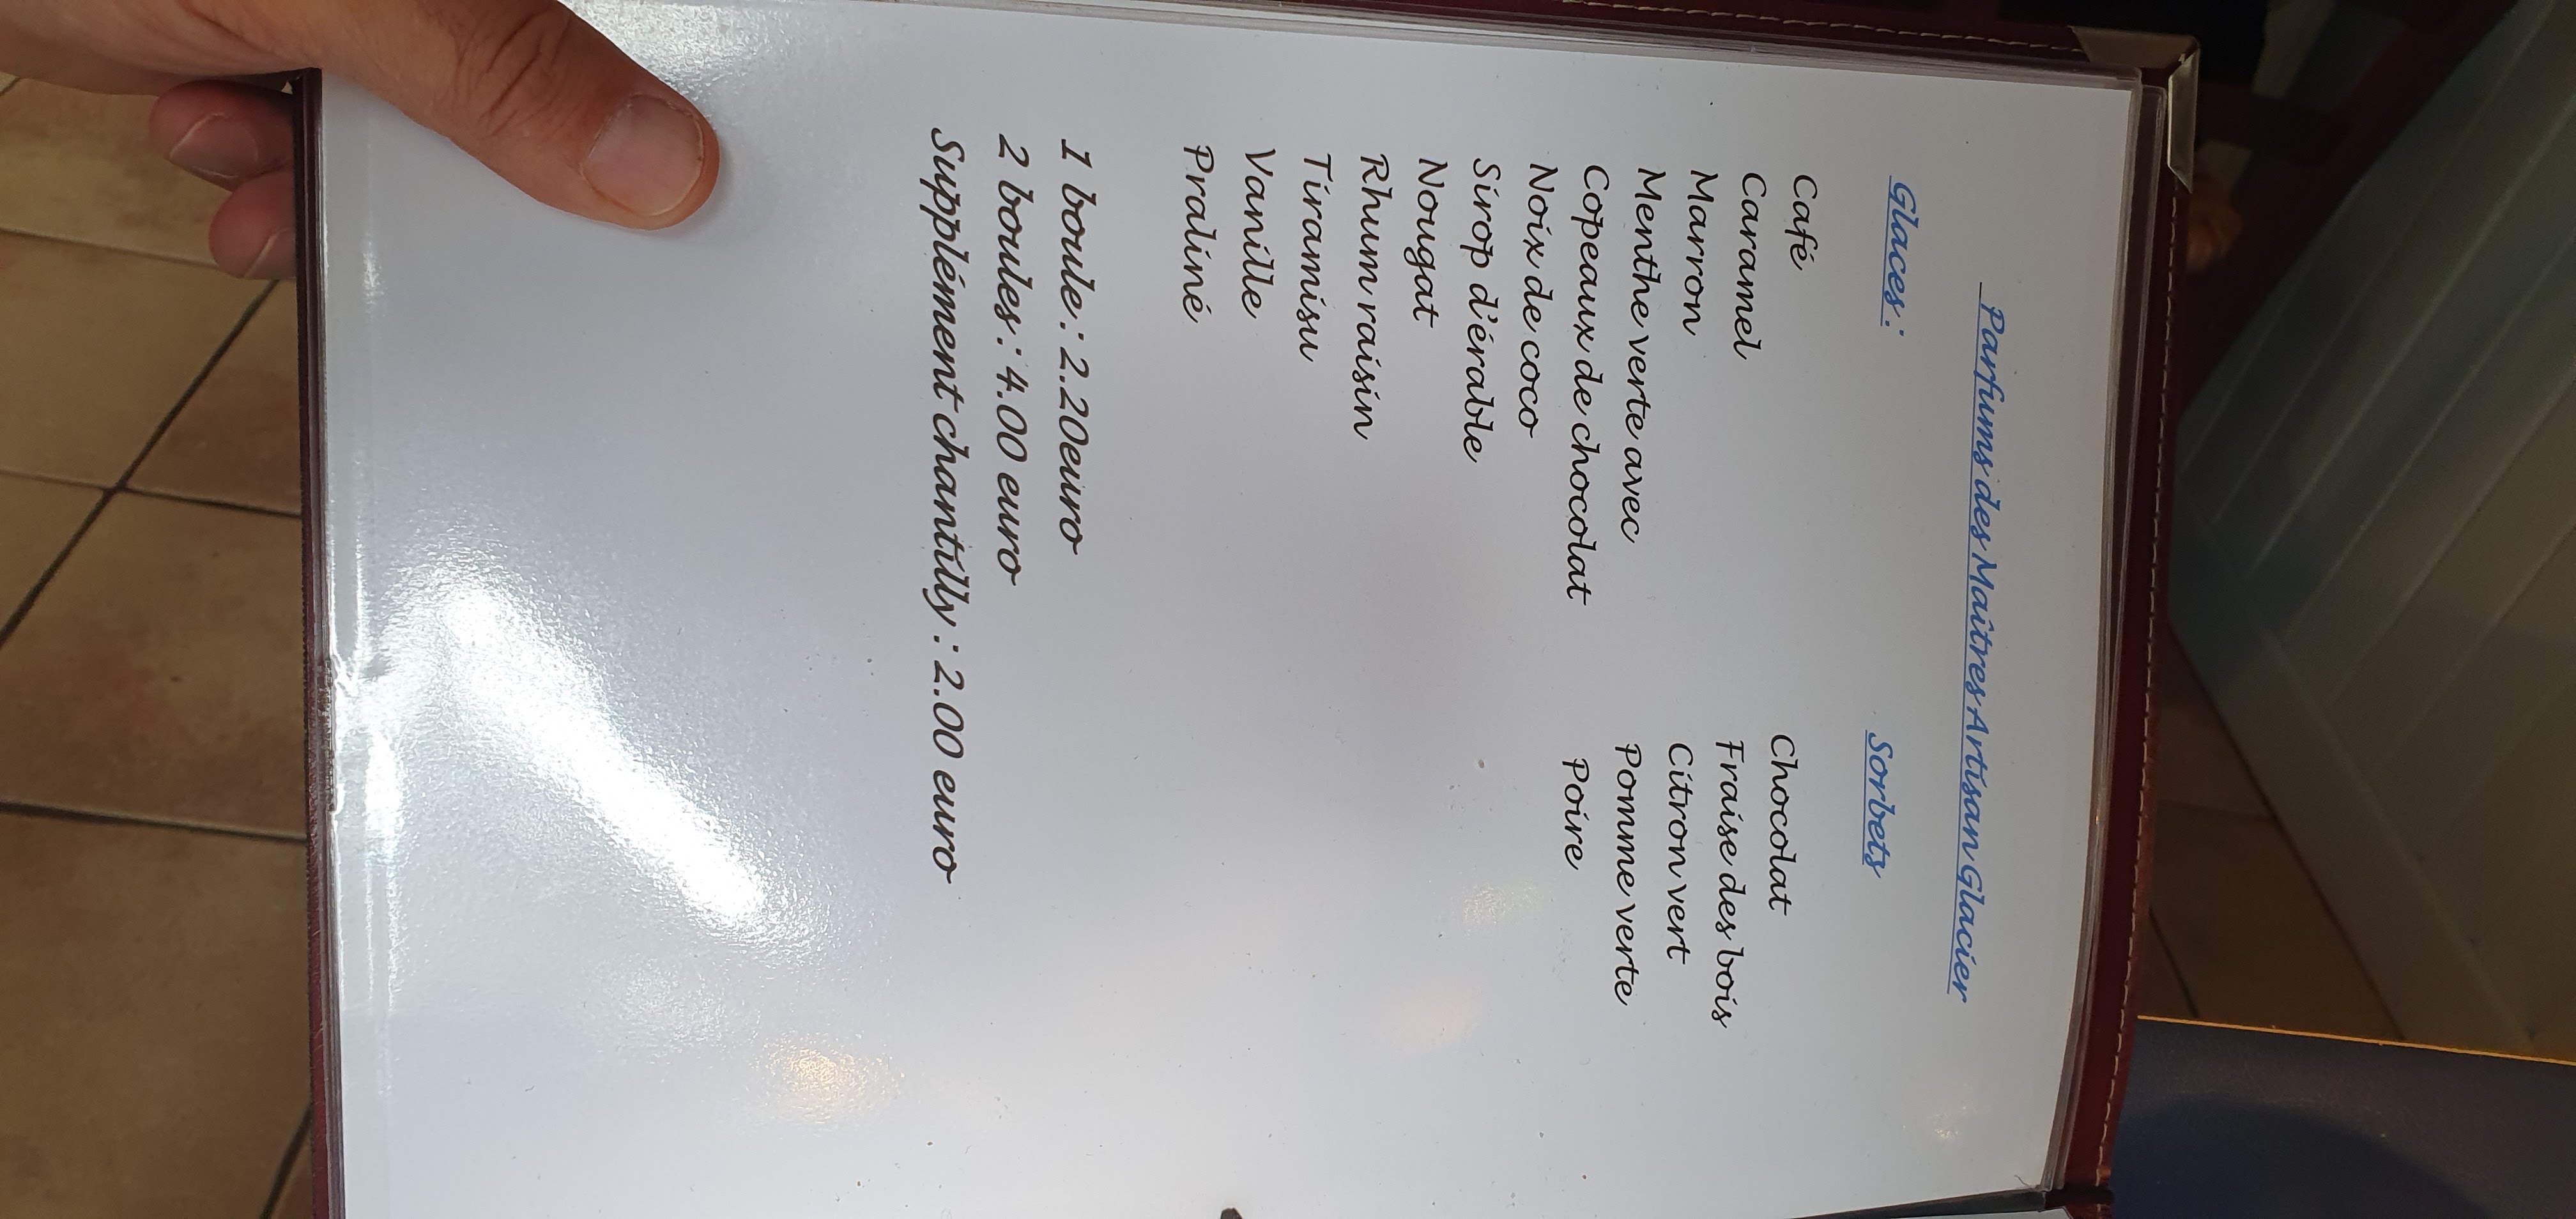 Parfums des Maîtres Artisan Glacier
Glaces :
Café
Caramel
Marron
Menthe verte avec
Copeaux de chocolat
Noix de coco
Sirop d'érable
Nougat
Rhum raisin
Tiramisu
Vanille
Praliné
Sorbets
Chocolat
Fraise des bois
Citron vert
Pomme verte
Poire
1 boule : 2.20euro
2 boules : 4.00 euro
Supplément chantilly : 2.00 euro